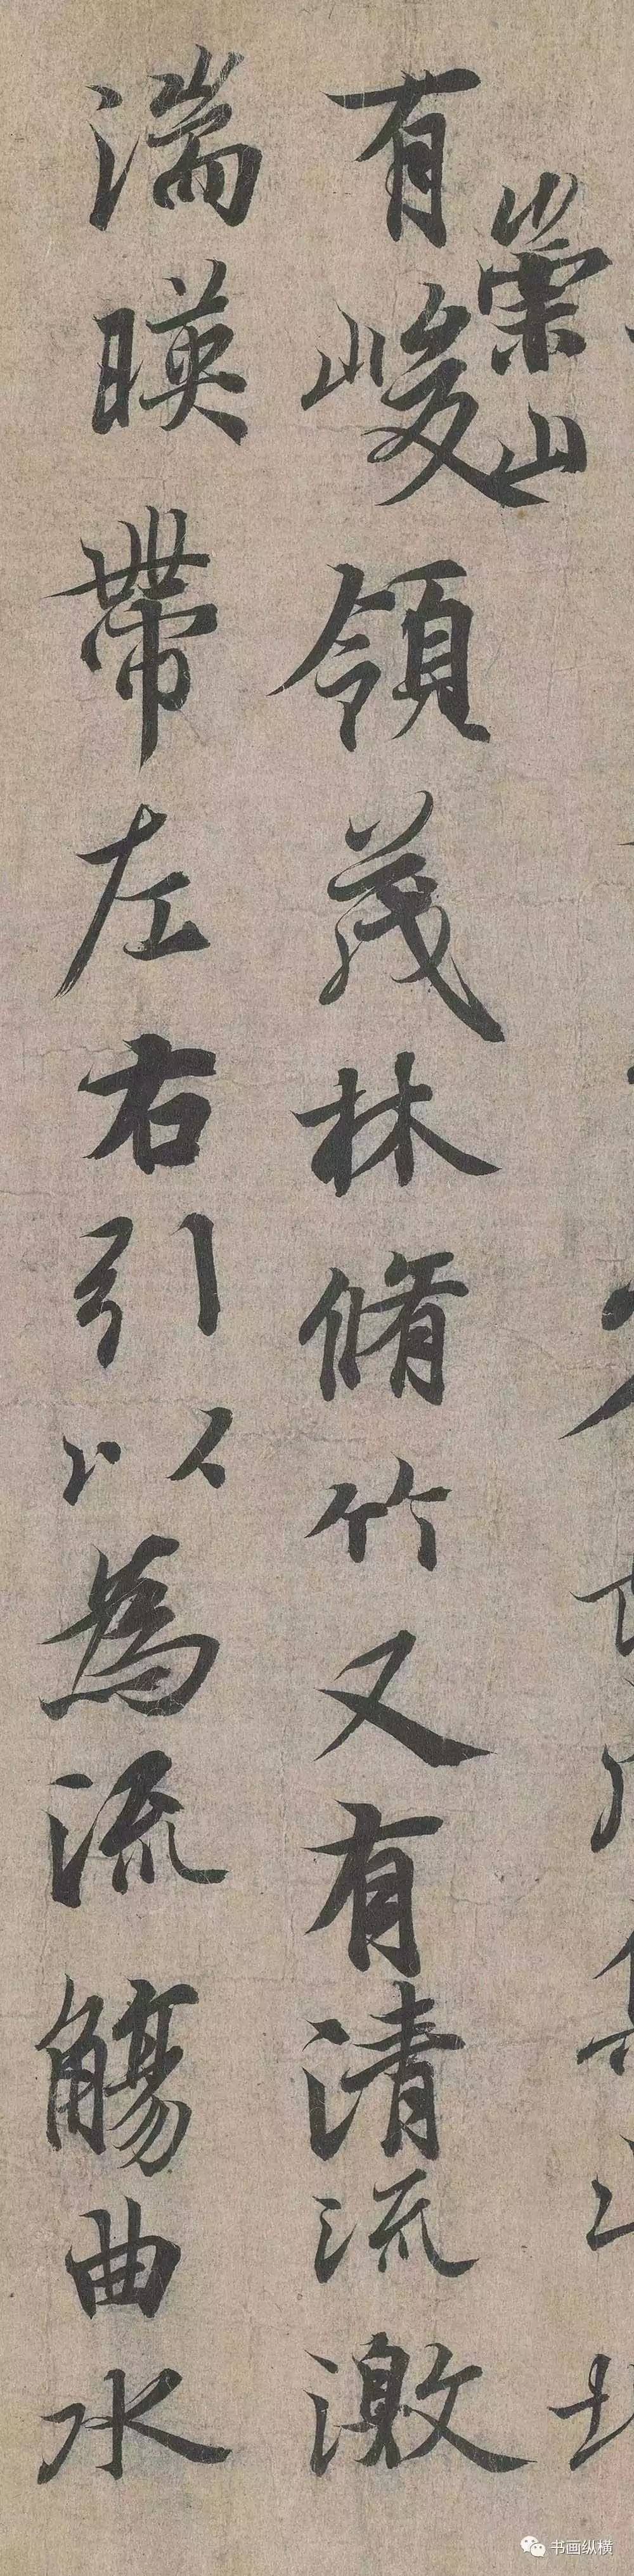 崇山
有峻領茂林脩竹又有清流激
湍暎帶左右引以為流觴曲水
书画纵横